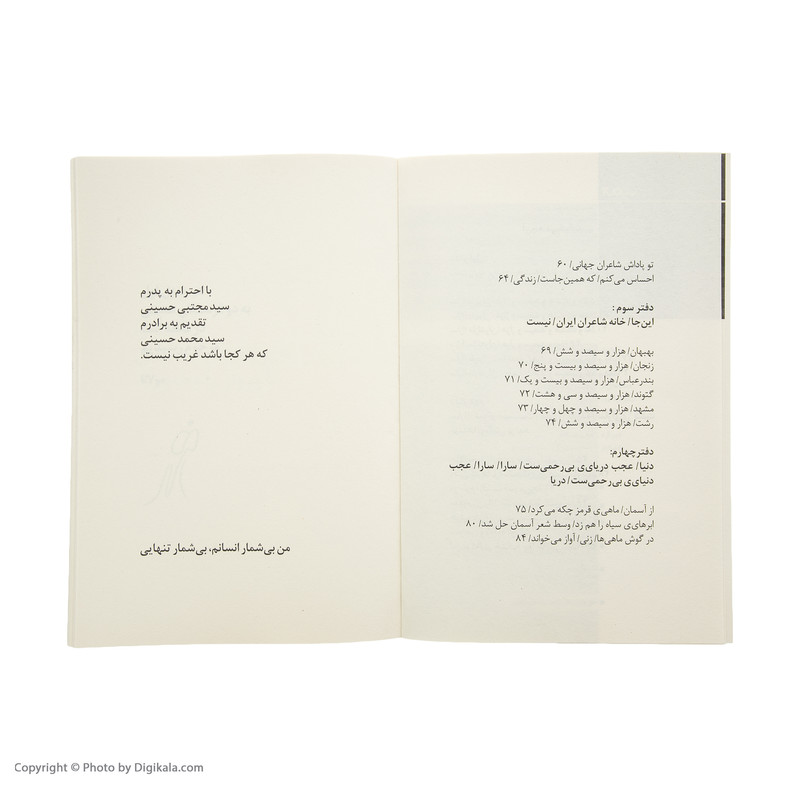 تو پاداش شاعران جهانی/ ۶۰
احساس می‌کنم/ که همین‌جاست/ زندگی/ ۶۴
دفتر سوم :
این‌جا/ خانه شاعران ایران/ نیست
بهبهان/ هزار و سیصد و شش/ ۶۹
زنجان/ هزار و سیصد و بیست و پنج/ ۷۰
بندرعباس/ هزار و سیصد و بیست و یک/ ۷۱
گتوند/ هزار و سیصد و سی و هشت/ ۷۲
مشهد/ هزار و سیصد و چهل و چهار/ ۷۳
رشت/ هزار و سیصد و شش/ ۷۴
دفتر چهارم:
دنیا/ عجب دریای‌ی بی‌رحمی‌ست/ سارا/ سارا/ عجب
دنیای‌ی بی‌رحمی‌ست/ دریا
از آسمان/ ماهی‌ی قرمز چکه می‌کرد/ ۷۵
ابرهای‌ی سیاه را هم زد/ وسط شعر آسمان حل شد/ ۸۰
در گوش ماهی‌ها/ زنی/ آواز می‌خواند/ ۸۴
با احترام به پدرم
سید مجتبی حسینی
تقدیم به برادرم
سید محمد حسینی
که هر کجا باشد غریب نیست.
من بی‌شمار انسانم، بی‌شمار تنهایی
Copyright © Photo by Digikala.com